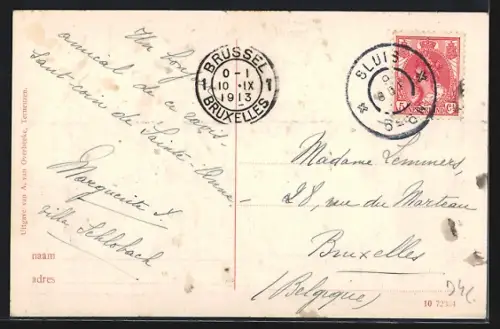 Un bonj
amical de ce ravis-
sant coin de Sainte Anne.
Marguerite S.
villa Schlobach
BRUSSEL
1 0-1 1
10 IX
1913
BRUXELLES
SLUIS
Madame Lemmers,
28, rue du Marteau
Bruxelles
(Belgique)
Uitgave van A. van Overbeeke, Terneuzen.
naam
adres
10 72